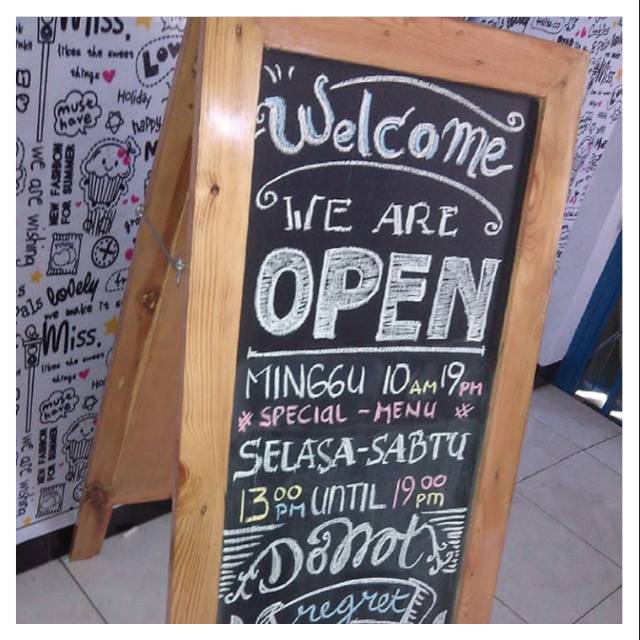 Welcome
WE ARE
OPEN
MINGGU 10 AM 19 PM
SPECIAL - MENU
SELASA-SABTU
13 00 PM UNTIL 19 00 PM
Donot
regret
Miss.
likes the sweet
things
Love
must
have
Holiday
happy
we are wishing
NEW FASHION
FOR SUMMER
lovely
we make it
Miss.
likes the sweet
things
must
have
we are wishing
NEW FASHION
FOR SUMMER
Miss.